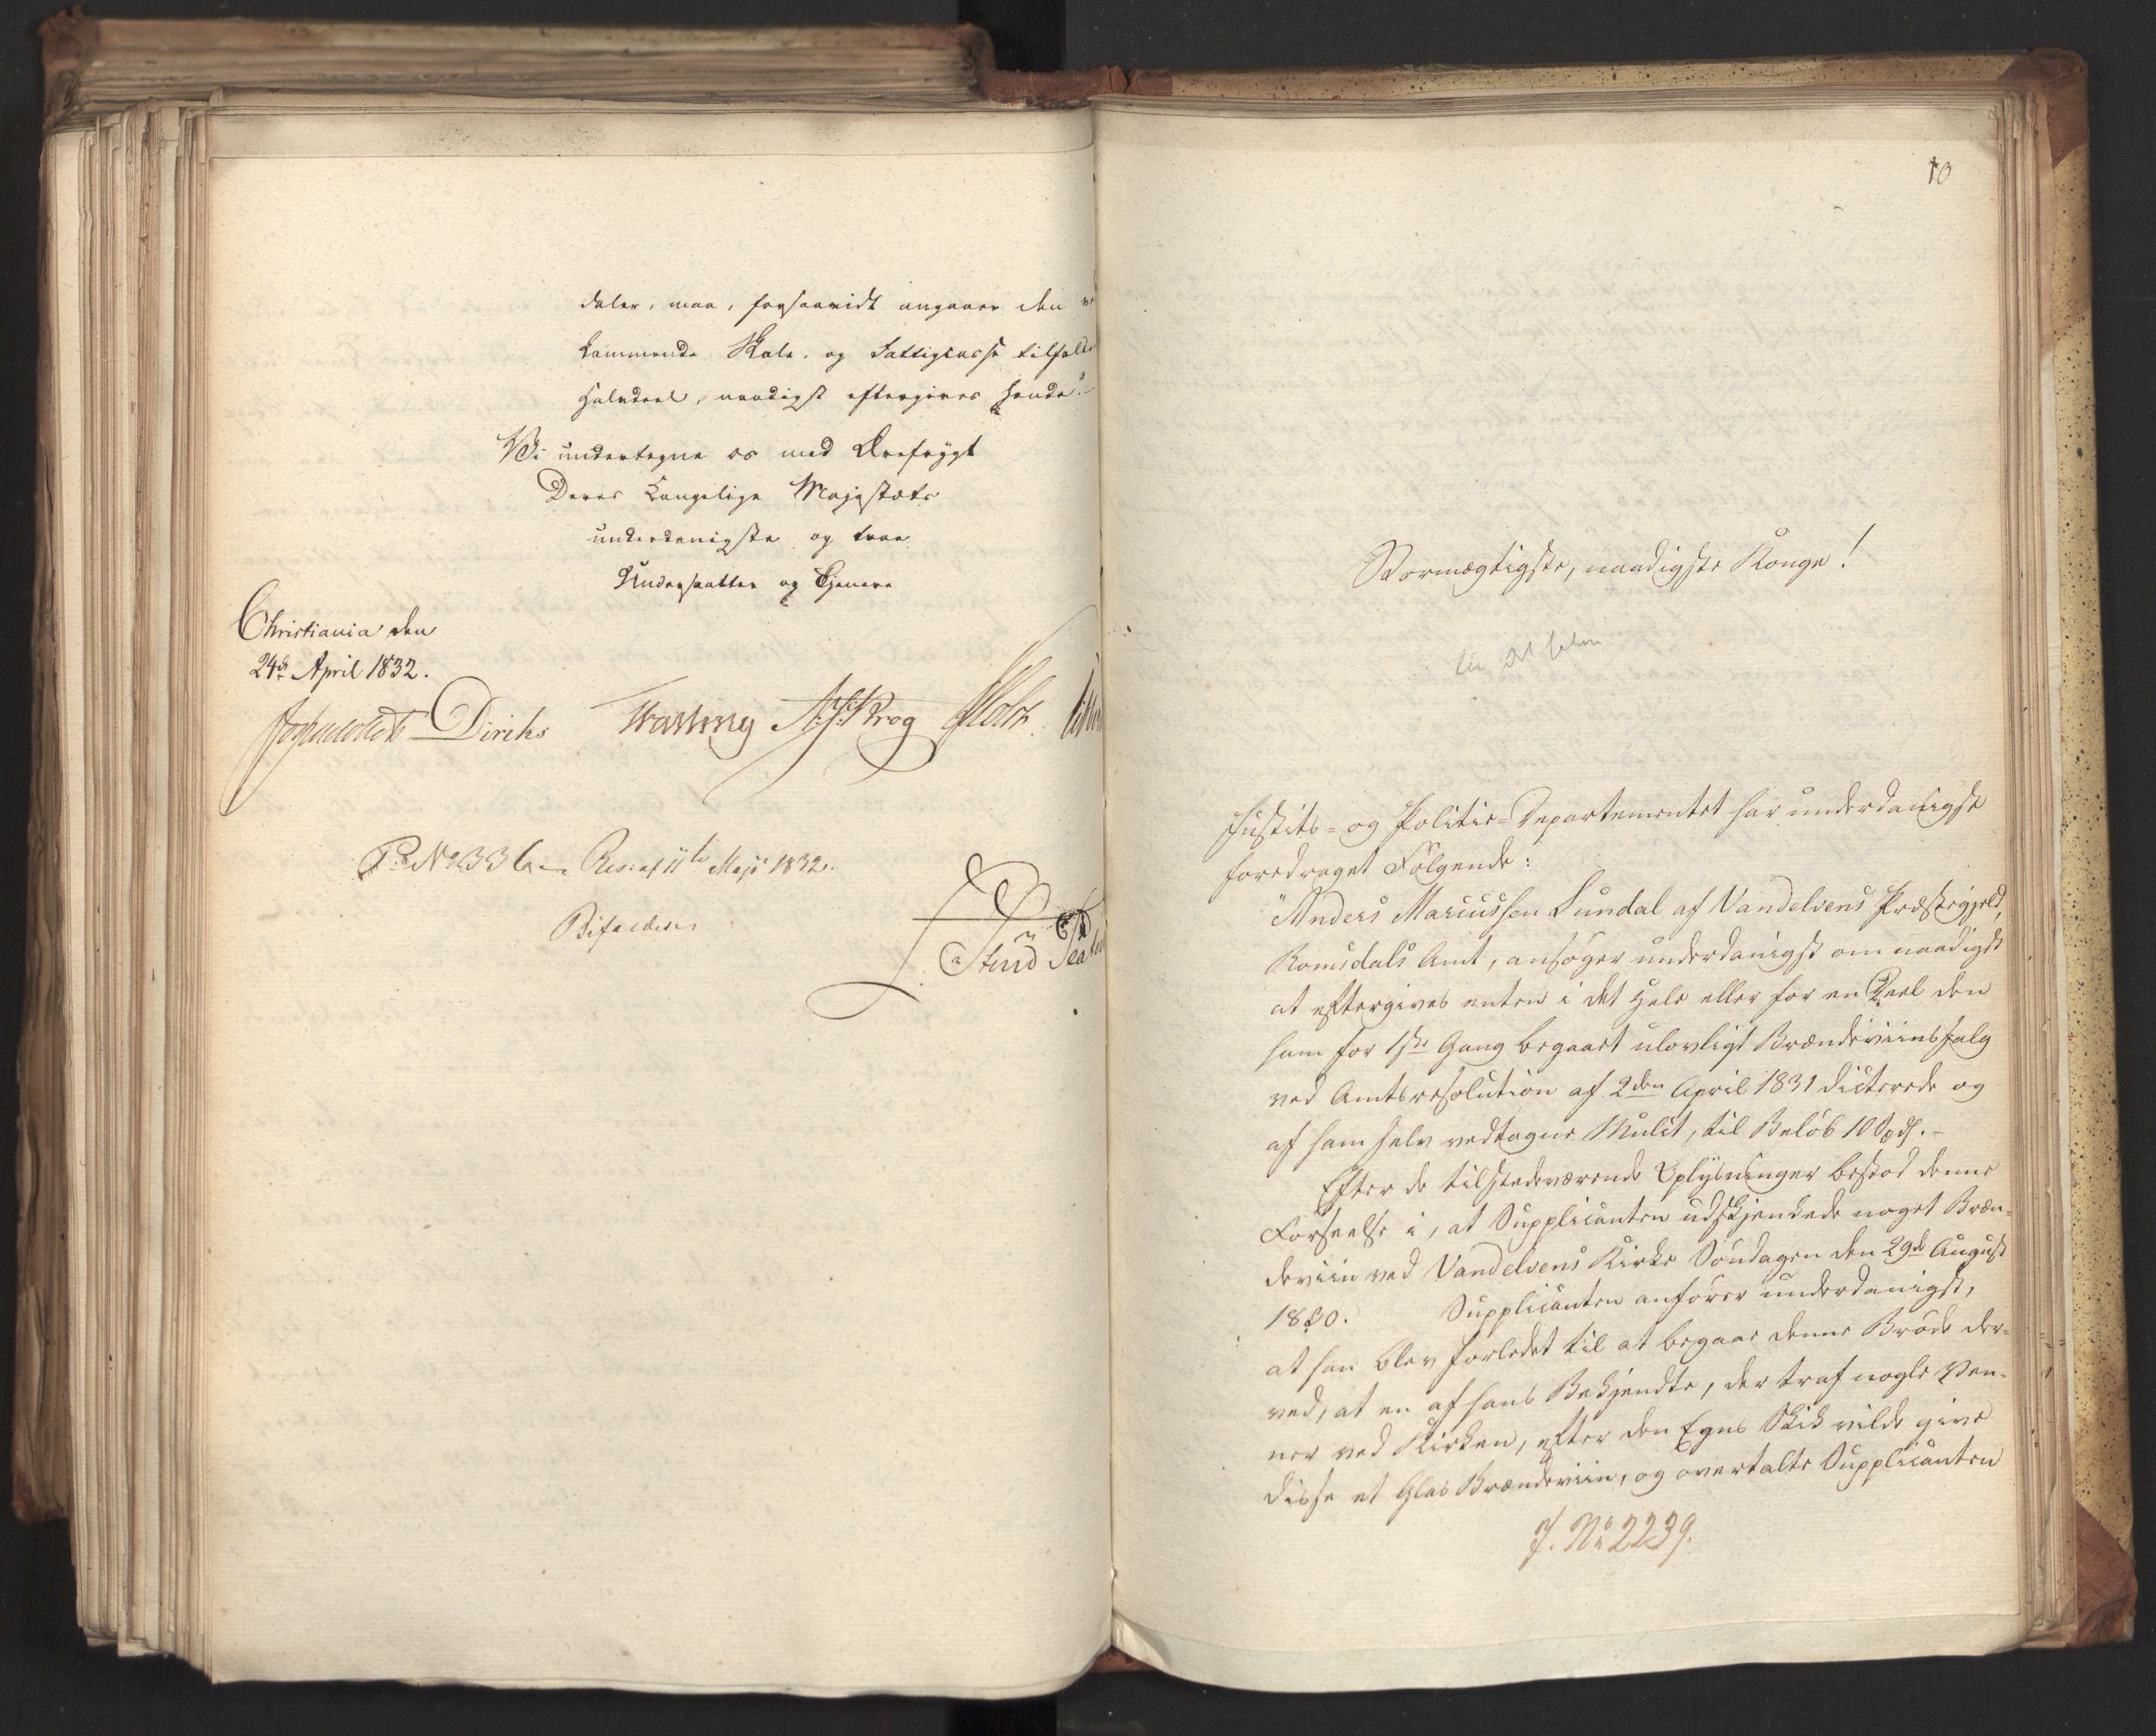 daler, maa, forsaavidt angaaer den ved
kommende Skole- og Fattigcasse tilfaldne
Halvdeel, naadigst eftergives hende."
Vi undertegne os med Ærefrygt
Deres Kongelige Majestæts
underdanigste og troe
Undersaatter og Tjenere
Christiania den
24de April 1832.
Collett Diriks Fasting Krog Holst
P. No 336 Res: af 11te Maji 1832.
Bifaldes
10
Stormægtigste, naadigste Konge!
Justits- og Politie-Departementet har underdanigst
foredraget Følgende:
"Anders Mariussen Lundal af Vandelvens Præstegjeld,
Romsdals Amt, ansøger underdanigst om naadigst
at eftergives enten i det Hele eller for en Deel den
ham for 1ste Gang begaaet ulovligt Brændeviinssalg
ved Amtsresolution af 2den April 1831 dicterede og
af ham selv vedtagne Mulct, til Beløb 10 Spd. -
Efter de tilstedeværende Oplysninger bestod denne
Forseelse i, at Supplicanten udskjenkede noget Bræn-
deviin ved Vandelvens Kirke Søndagen den 29de August
1830. Supplicanten anfører underdanigst,
at han blev forledet til at begaae denne Brøde der-
ved, at en af hans Bekjendte, der traf nogle Ven-
ner ved Kirken, efter den Egns Skik vilde give
disse et Glas Brændeviin, og overtalte Supplicanten
J. No 2239.